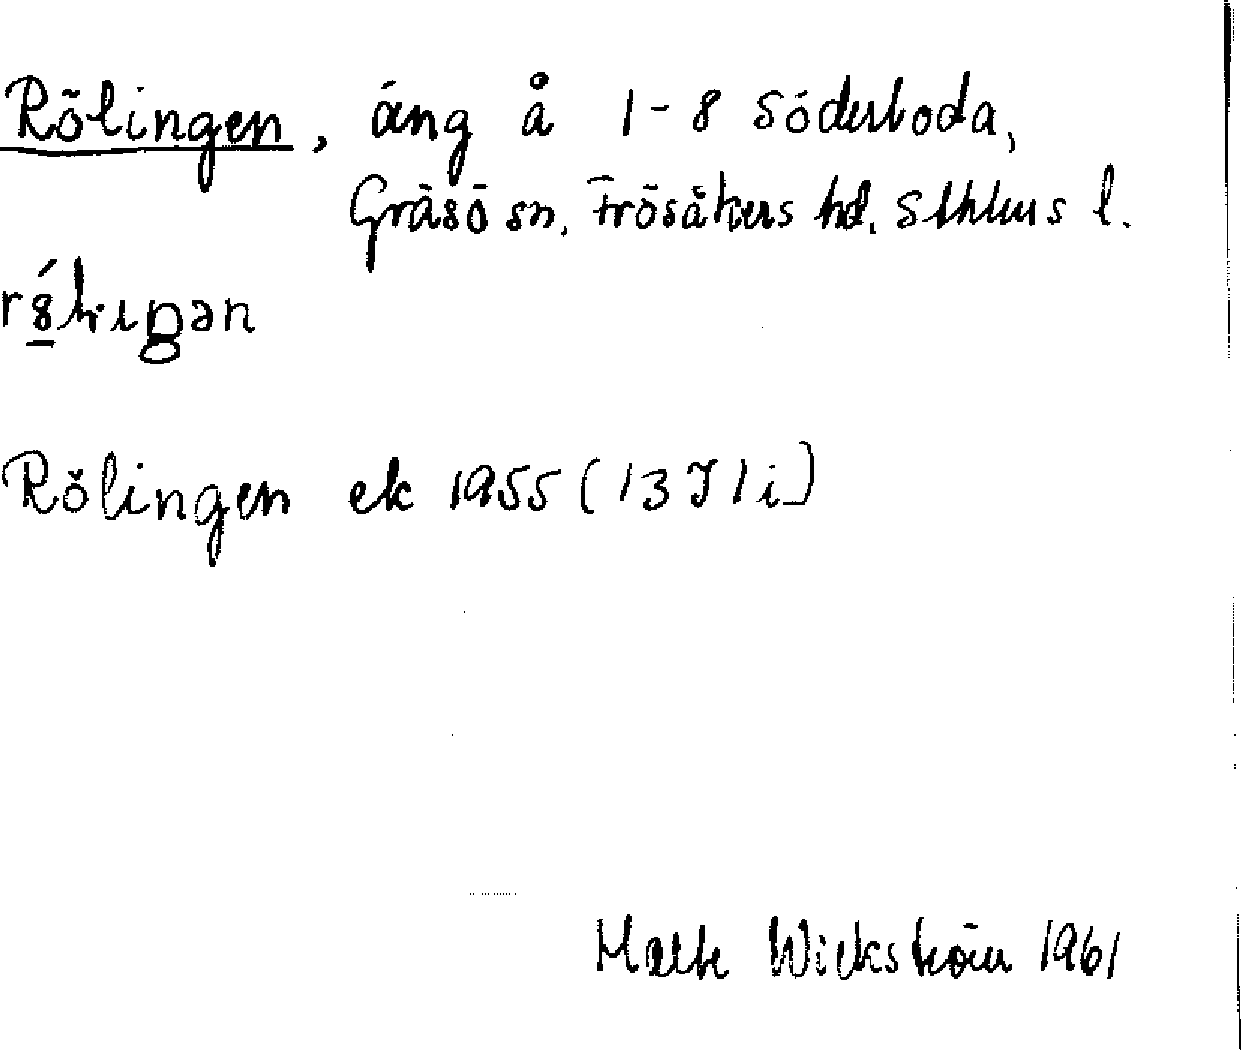 Rölingen, äng å 1-8 Söderboda,
Gräsö sn, Frösåkers hd, Sthlms l.
Rölingen ek 1955 (13I1i)
Malte Wickström 1961